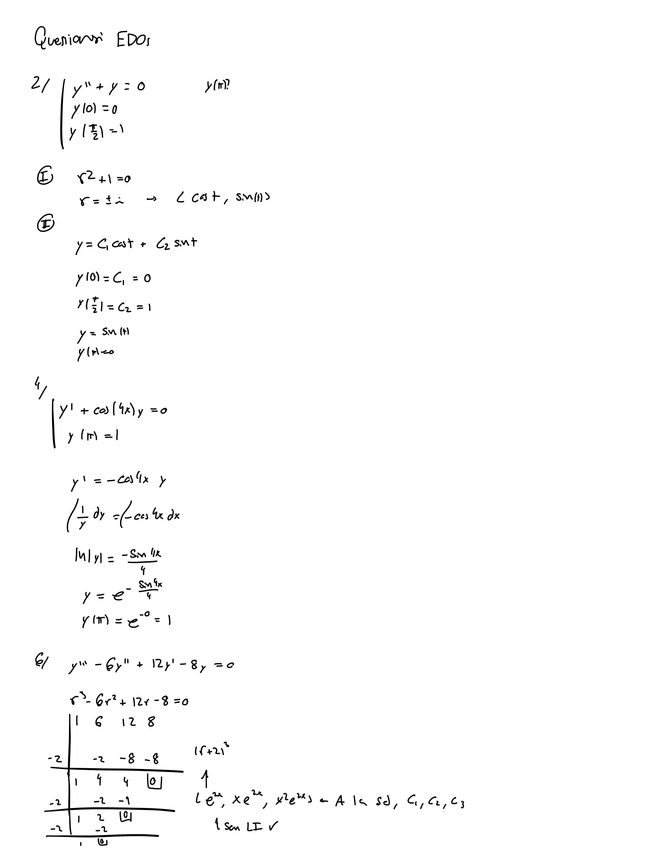 Questions EDOs
2/ y'' + y = 0 y(π)?
y(0) = 0
y(π/2) = 1
I r² + 1 = 0
r = ± i → ⟨ cos t, sin(t) ⟩
II
y = C₁ cos t + C₂ sin t
y(0) = C₁ = 0
y(π/2) = C₂ = 1
y = sin(t)
y(π) = 0
4/
y' + cos(4x) y = 0
y(π) = 1
y' = -cos 4x y
∫ 1/y dy = ∫ -cos 4x dx
ln|y| = -sin 4x / 4
y = e^(- sin 4x / 4)
y(π) = e^(-0) = 1
6/ y''' - 6y'' + 12y' - 8y = 0
r³ - 6r² + 12r - 8 = 0
1 6 12 8
-2 -2 -8 -8 (r+2)³
1 4 4 0 ↑
-2 -2 -4 ⟨ e^(2x), x e^(2x), x² e^(2x) ⟩ ← A la sol, C₁, C₂, C₃
1 2 0 ↑ Son LI ✓
-2 -2
1 0